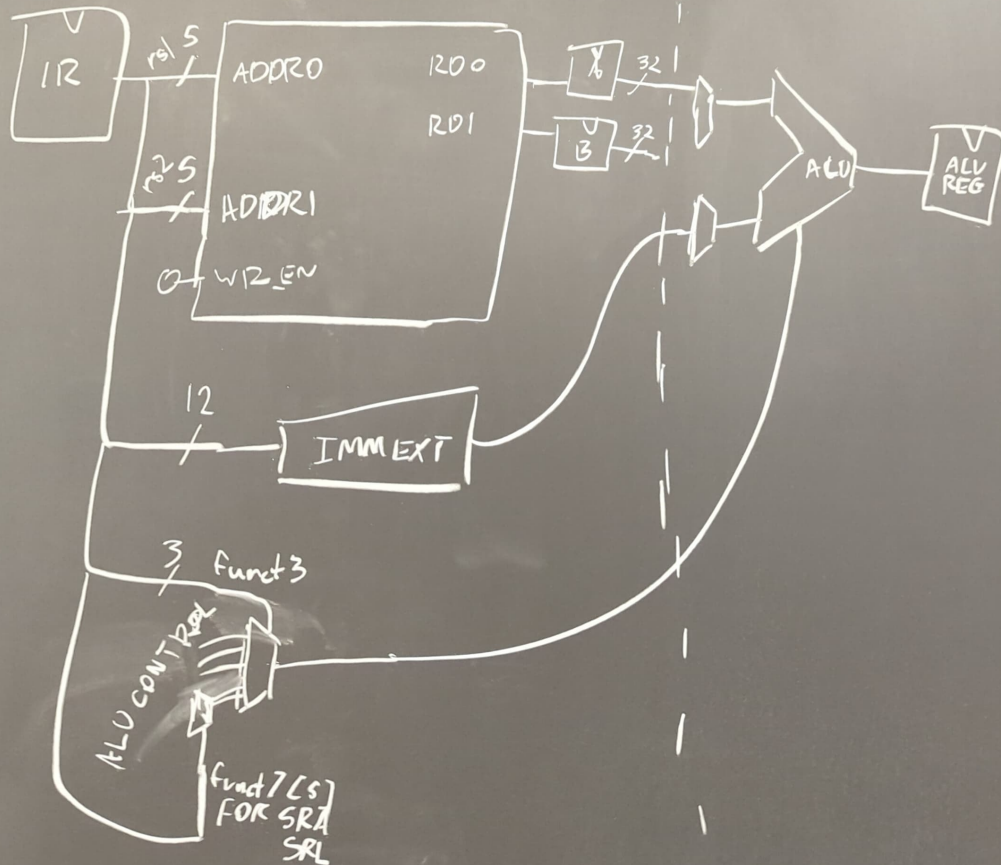 IR
rs1 5
ADDR0
RD0
32
RD1
B
32
ALU
ALU
REG
rs2 5
ADDR1
0
WR_EN
12
IMM EXT
3
funct3
ALU CONTROL
funct7[5]
FOR SRA
SRL